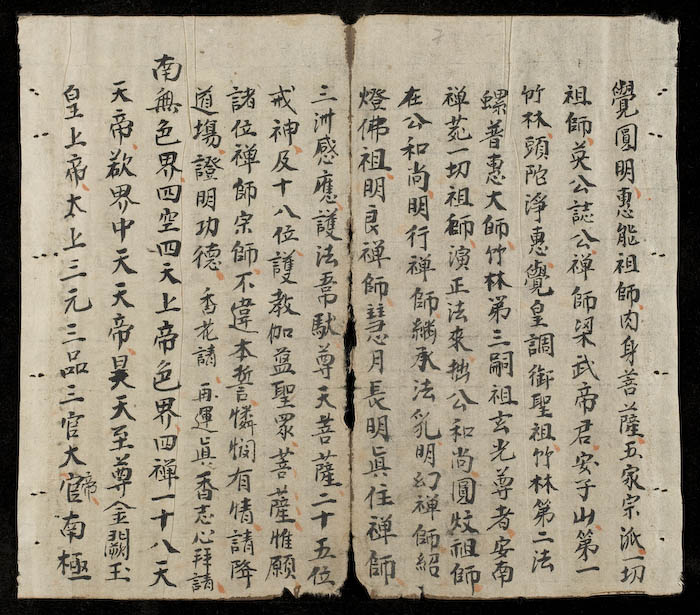 覺圓明惠能祖師肉身菩薩五家宗派一切
祖師英公誌公禪師梁武帝君安子山第一
竹林頭陀淨惠覺皇調御聖祖竹林第二法
螺普惠大師竹林第三嗣祖玄光尊者安南
禅苑一切祖師演正法來拙公和尚圓炆祖師
在公和尚明行禅師継承法乳明幻禅師紹
燈佛祖明良禅師慧月長明眞住禅師
三洲感應護法韋馱尊天菩薩二十五位
戒神及十八位護教伽藍聖眾菩薩惟願
諸位禅師宗師不違本誓憐憫有情請降
道場證明功德 香花請 再運眞香志心拜請
南無色界四空四天上帝色界四禅一十八天
天帝欲界中天天帝昊天至尊金闕玉
皇上帝太上三元三品三官大帝南極